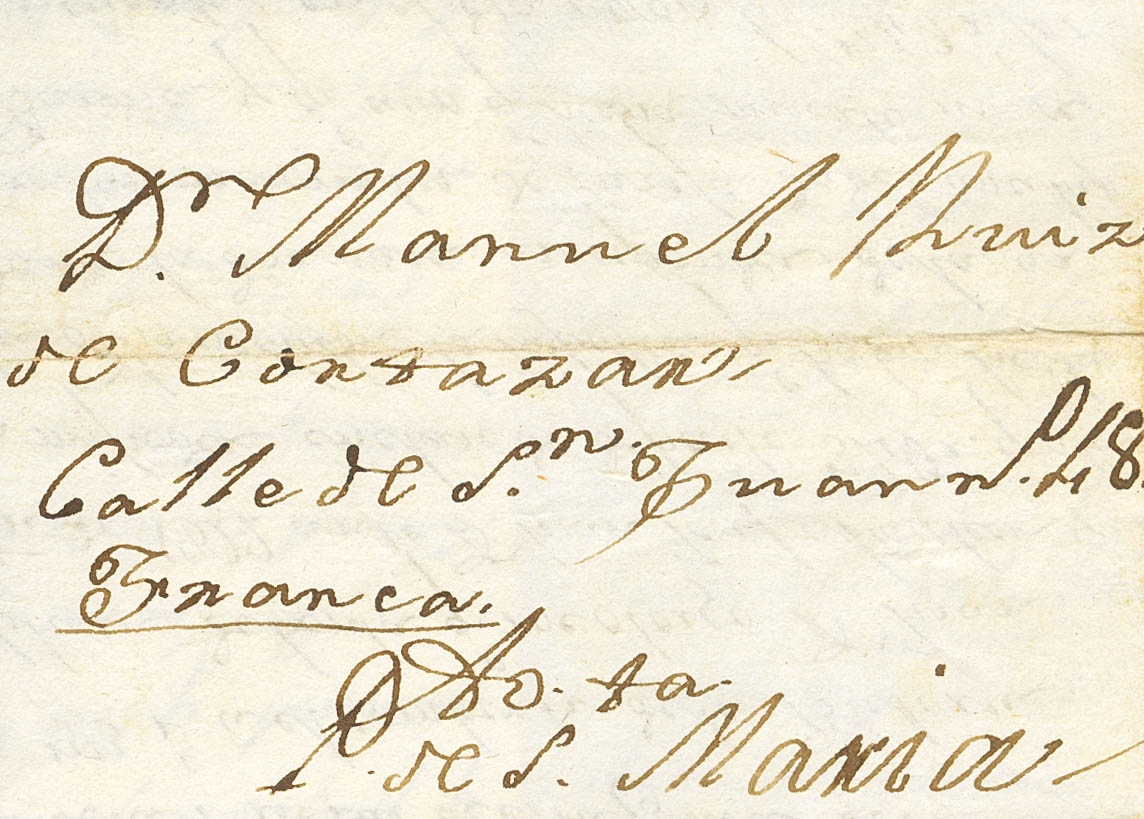 Dn. Manuel Ruiz
de Cortazar
Calle de Sn. Juan n.º 48.
Franca.
Pto. de Sta. Maria